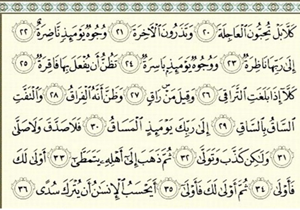 كَلَّا بَلْ تُحِبُّونَ ٱلْعَاجِلَةَ ٢٠ وَتَذَرُونَ ٱلْآخِرَةَ ٢١ وُجُوهٌ يَوْمَئِذٍ نَّاضِرَةٌ ٢٢
إِلَىٰ رَبِّهَا نَاظِرَةٌ ٢٣ وَوُجُوهٌ يَوْمَئِذٍ بَاسِرَةٌ ٢٤ تَظُنُّ أَن يُفْعَلَ بِهَا فَاقِرَةٌ ٢٥
كَلَّا إِذَا بَلَغَتِ ٱلتَّرَاقِيَ ٢٦ وَقِيلَ مَنْ رَاقٍ ٢٧ وَظَنَّ أَنَّهُ ٱلْفِرَاقُ ٢٨ وَٱلْتَفَّتِ
ٱلسَّاقُ بِٱلسَّاقِ ٢٩ إِلَىٰ رَبِّكَ يَوْمَئِذٍ ٱلْمَسَاقُ ٣٠ فَلَا صَدَّقَ وَلَا صَلَّىٰ
٣١ وَلَٰكِن كَذَّبَ وَتَوَلَّىٰ ٣٢ ثُمَّ ذَهَبَ إِلَىٰ أَهْلِهِ يَتَمَطَّىٰ ٣٣ أَوْلَىٰ لَكَ
فَأَوْلَىٰ ٣٤ ثُمَّ أَوْلَىٰ لَكَ فَأَوْلَىٰ ٣٥ أَيَحْسَبُ ٱلْإِنسَٰنُ أَن يُتْرَكَ سُدًى ٣٦